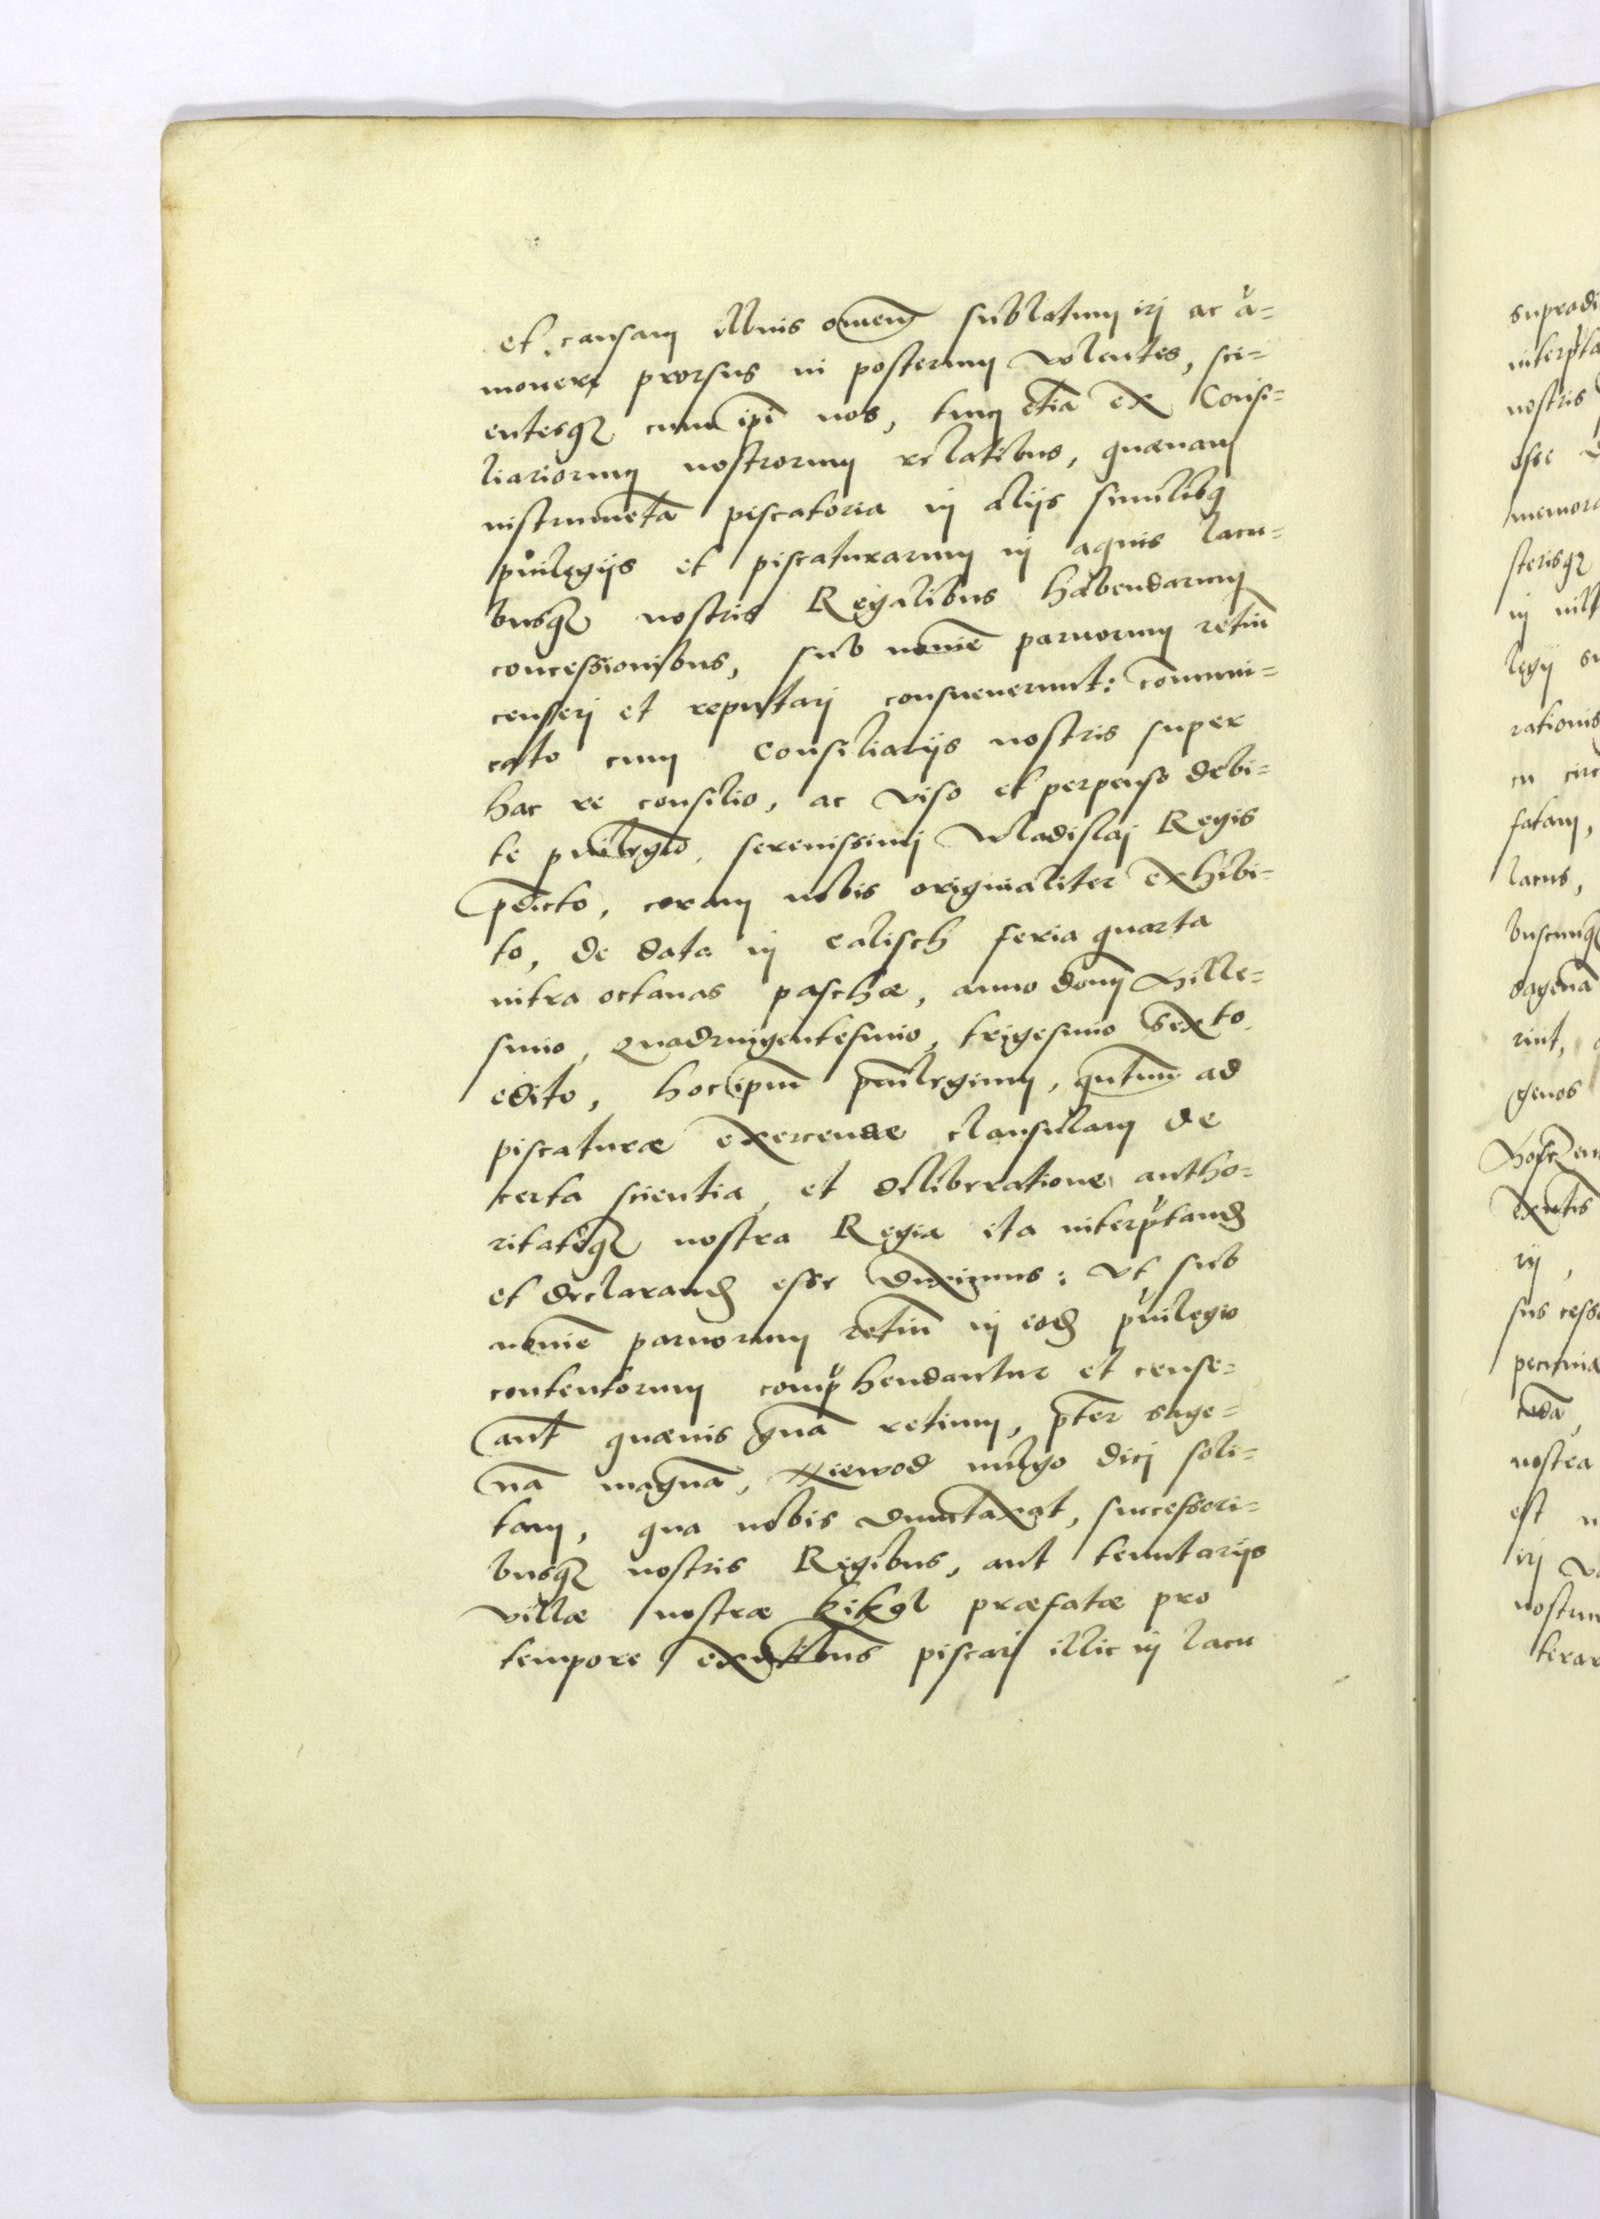 et causam illius omnem̄ sublatum iri ac a=
moueri prorsus in posterum volentes, sci=
entesqꝫ cum ipi nos, tum etiā ex Consi=
liariorum nostrorum relatibus, quænam
instrumētā piscatoria in alijs similibꝫ
priuilegijs et piscaturarum in aquis lacu=
busqꝫ nostris Regalibus habendarum
concessionibus, sub nomīe paruorum retiū
censeri et reputari consueuerunt: commui=
cato cum Consiliarijs nostris super
hac re consilio, ac viso et perpenso debi=
te priuilegio, serenissimi Wladislai Regis
p̄dicto, coram nobis originaliter exhibi=
to, de data in Calisch feria quarta
intra octauas paschæ, anno domi Mille=
simo, Quadringentesimo, trigesimo sexto
edito, hoc ipm̄ priuilegium, qntum ad
piscaturæ exercendæ clausulam de
certa scientia, et deliberatione autho=
ritateqꝫ nostra Regia ita interp̄tand
et declarand esse duximus: vt sub
nomīe paruorum retiū in eod priuilegio
contentorum comp̄hendantur et cense=
ant quæuis gn̄a retium, p̄ter sage=
nā magnā, Niewod vulgo dici soli=
tam, qua nobis duntaxat, successori=
busqꝫ nostris Regibus, aut tenutarijs
villæ nostræ Kikol præfatæ pro
tempore exn̄tibus piscari illic in lacu
supradi
interp̄ta
nostris
esse
memora
sterisqꝫ
in
legij su
rationis
cu circ
fatam,
lacus,
buscunqꝫ
sagenā
rint,
genos
exn̄tis
rij,
sus cess
pecunia
nostra
est n
iri vo
nostrum
terar